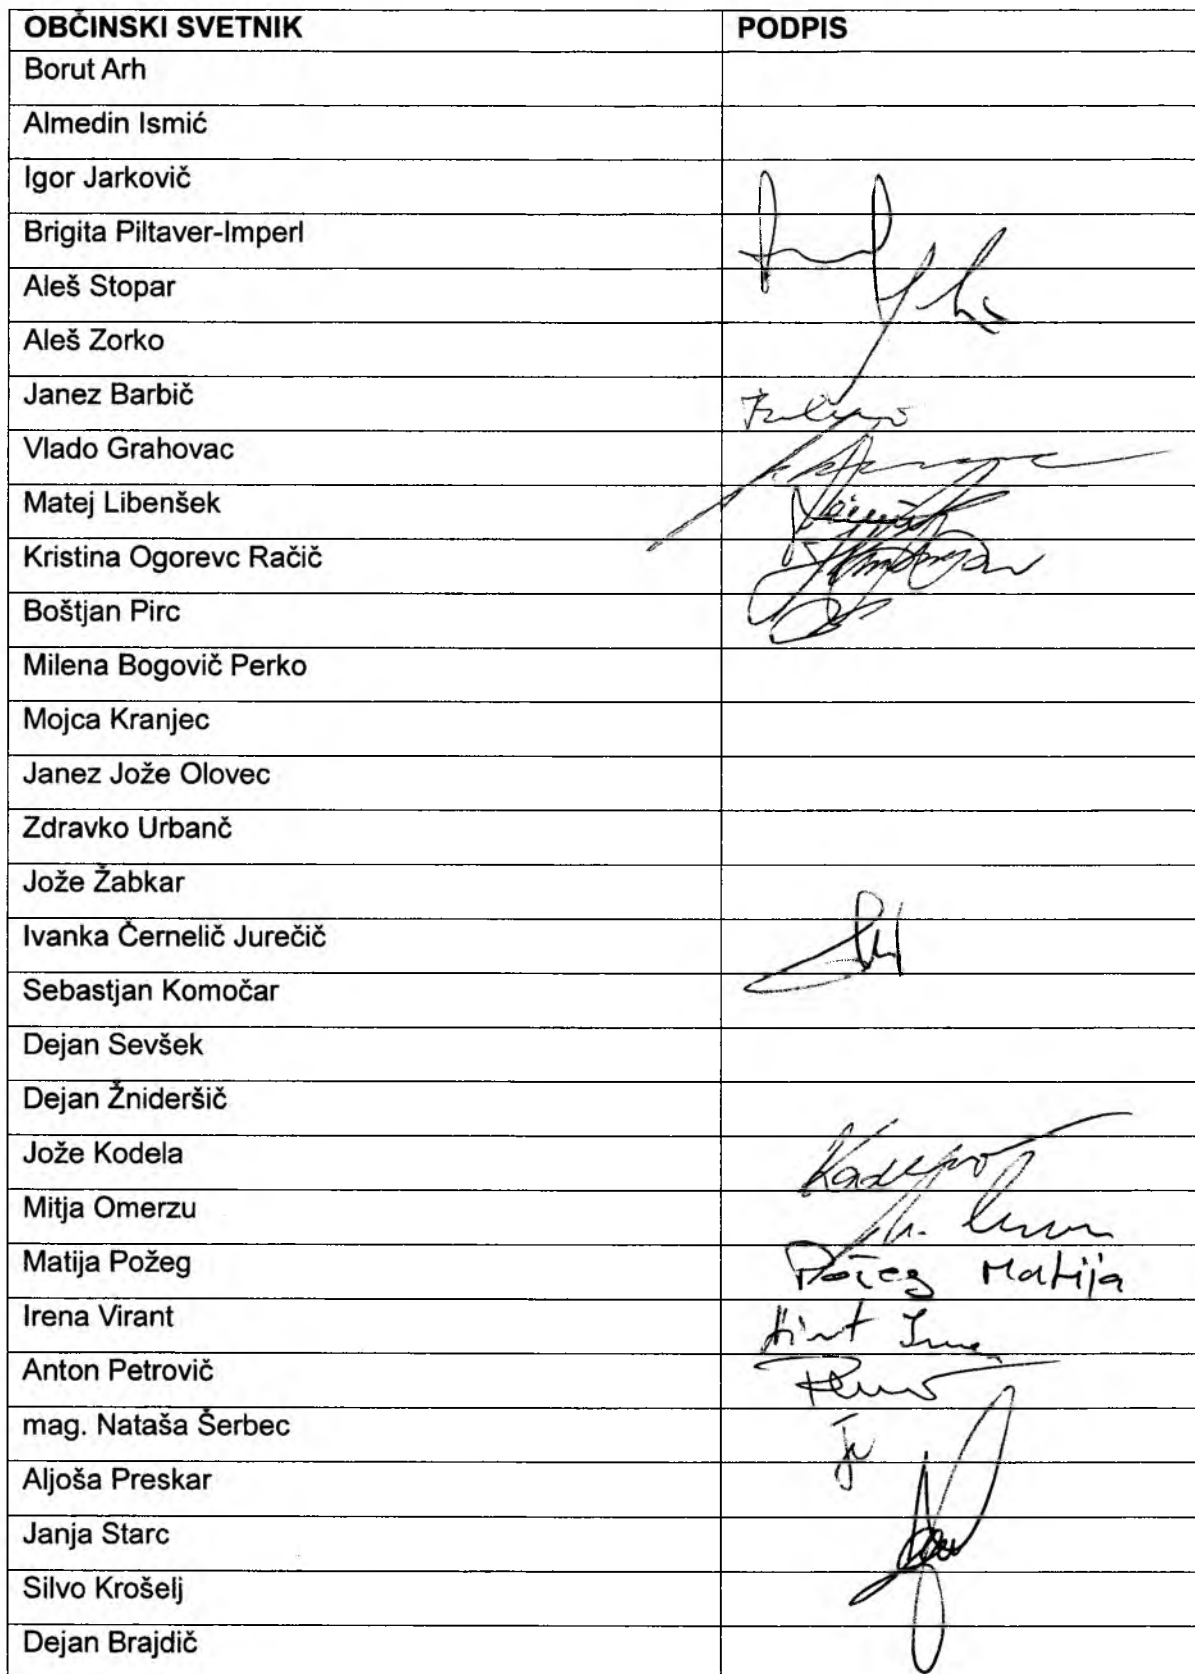 OBČINSKI SVETNIK PODPIS
Borut Arh
Almedin Ismić
Igor Jarkovič
Brigita Piltaver-Imperl
Aleš Stopar
Aleš Zorko
Janez Barbič
Vlado Grahovac
Matej Libenšek
Kristina Ogorevc Račič
Boštjan Pirc
Milena Bogovič Perko
Mojca Kranjec
Janez Jože Olovec
Zdravko Urbanč
Jože Žabkar
Ivanka Černelič Jurečič
Sebastjan Komočar
Dejan Sevšek
Dejan Žnideršič
Jože Kodela
Mitja Omerzu
Matija Požeg Požeg Matija
Irena Virant
Anton Petrovič
mag. Nataša Šerbec
Aljoša Preskar
Janja Starc
Silvo Krošelj
Dejan Brajdič